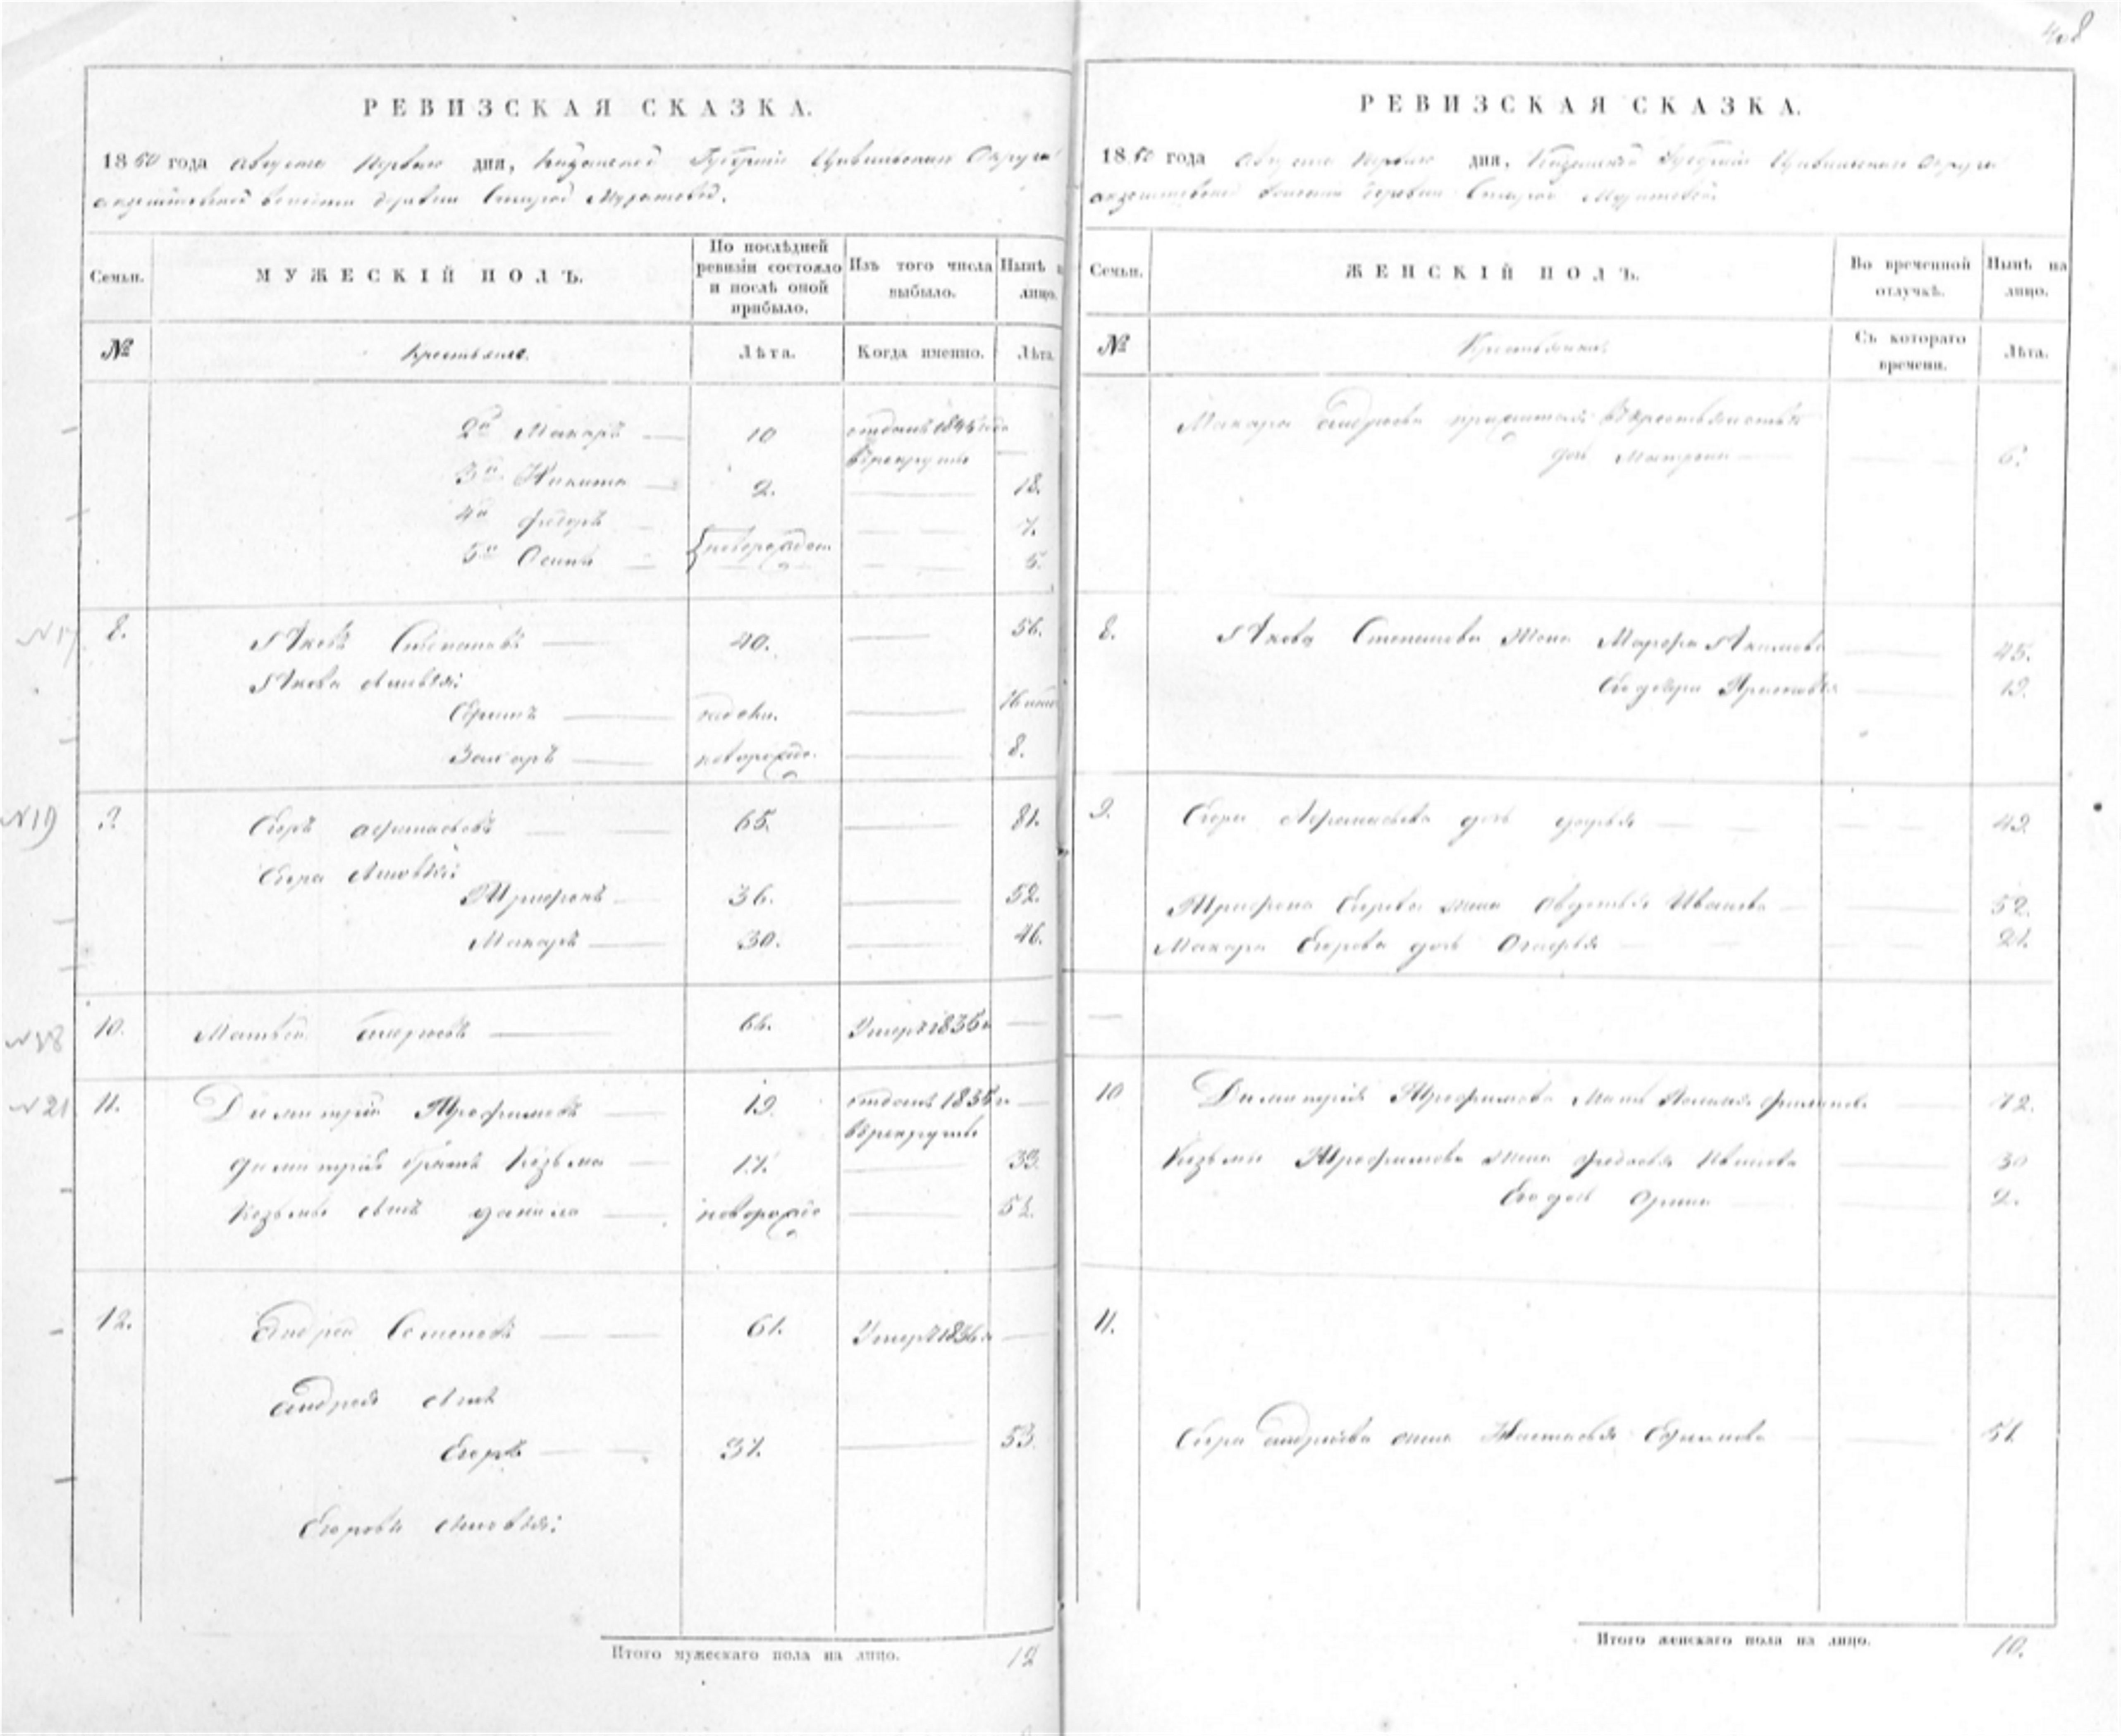 408
РЕВИЗСКАЯ СКАЗКА.
1850 года Августа Первого дня, Казанской Губернии Цивильскаго Округа
волости деревни Старой Муратовой.
Семьи.
МУЖЕСКІЙ ПОЛЪ.
По послѣдней ревизіи состояло и послѣ оной прибыло.
Изъ того числа выбыло.
Нынѣ на лицо.
№
Крестьяне.
Лѣта.
Когда именно.
Лѣта
2й Макаръ 10 отданъ 1845 года
в рекруты
3й Никита 2. 18.
4й Федоръ 7.
5й Осипъ новорожден 5.
№17 8. Яковъ Степановъ 40. 56.
Якова сыновья:
Ефимъ 16
Захаръ новорожд. 8.
№19 9. Егоръ Афанасьевъ 65. 81.
Егора сыновья:
Трифонъ 36. 52.
Макаръ 30. 46.
10. Матвей Андреевъ Умеръ 1835г
№21 11. Димитрій Трофимовъ 19. отданъ 1835г
в рекруты
Димитрія братъ Козьма 17. 33.
Козьмы сынъ Данила новорожд
12. Андрей Семеновъ 61. Умеръ 1836г
Андрея сынъ
Егоръ 37. 53.
Егоровы сыновья:
Итого мужескаго пола на лицо. 12
РЕВИЗСКАЯ СКАЗКА.
1850 года Августа Первого дня, Казанской Губерніи Цивильскаго Округа
волости деревни Старой Муратовой
Семьи.
ЖЕНСКІЙ ПОЛЪ.
Во временной отлучкѣ.
Нынѣ на лицо.
№
Крестьянки.
Съ котораго времени.
Лѣта.
Макара Андреева
дочь Матрена 6.
8. Якова Степанова жена Марфа Якимова 45.
9. Егора Афанасьева дочь Дарья 42.
Трифона Егорова жена Авдотья Иванова 52.
Макара Егорова дочь Агафья 21.
10 Димитрія Трофимова Мать 72.
Козьмы Трофимова жена Федосья Иванова 30
Его дочь Орина 2.
11.
Егора Андреева жена Настасья Ефимова 51
Итого женскаго пола на лицо. 10.